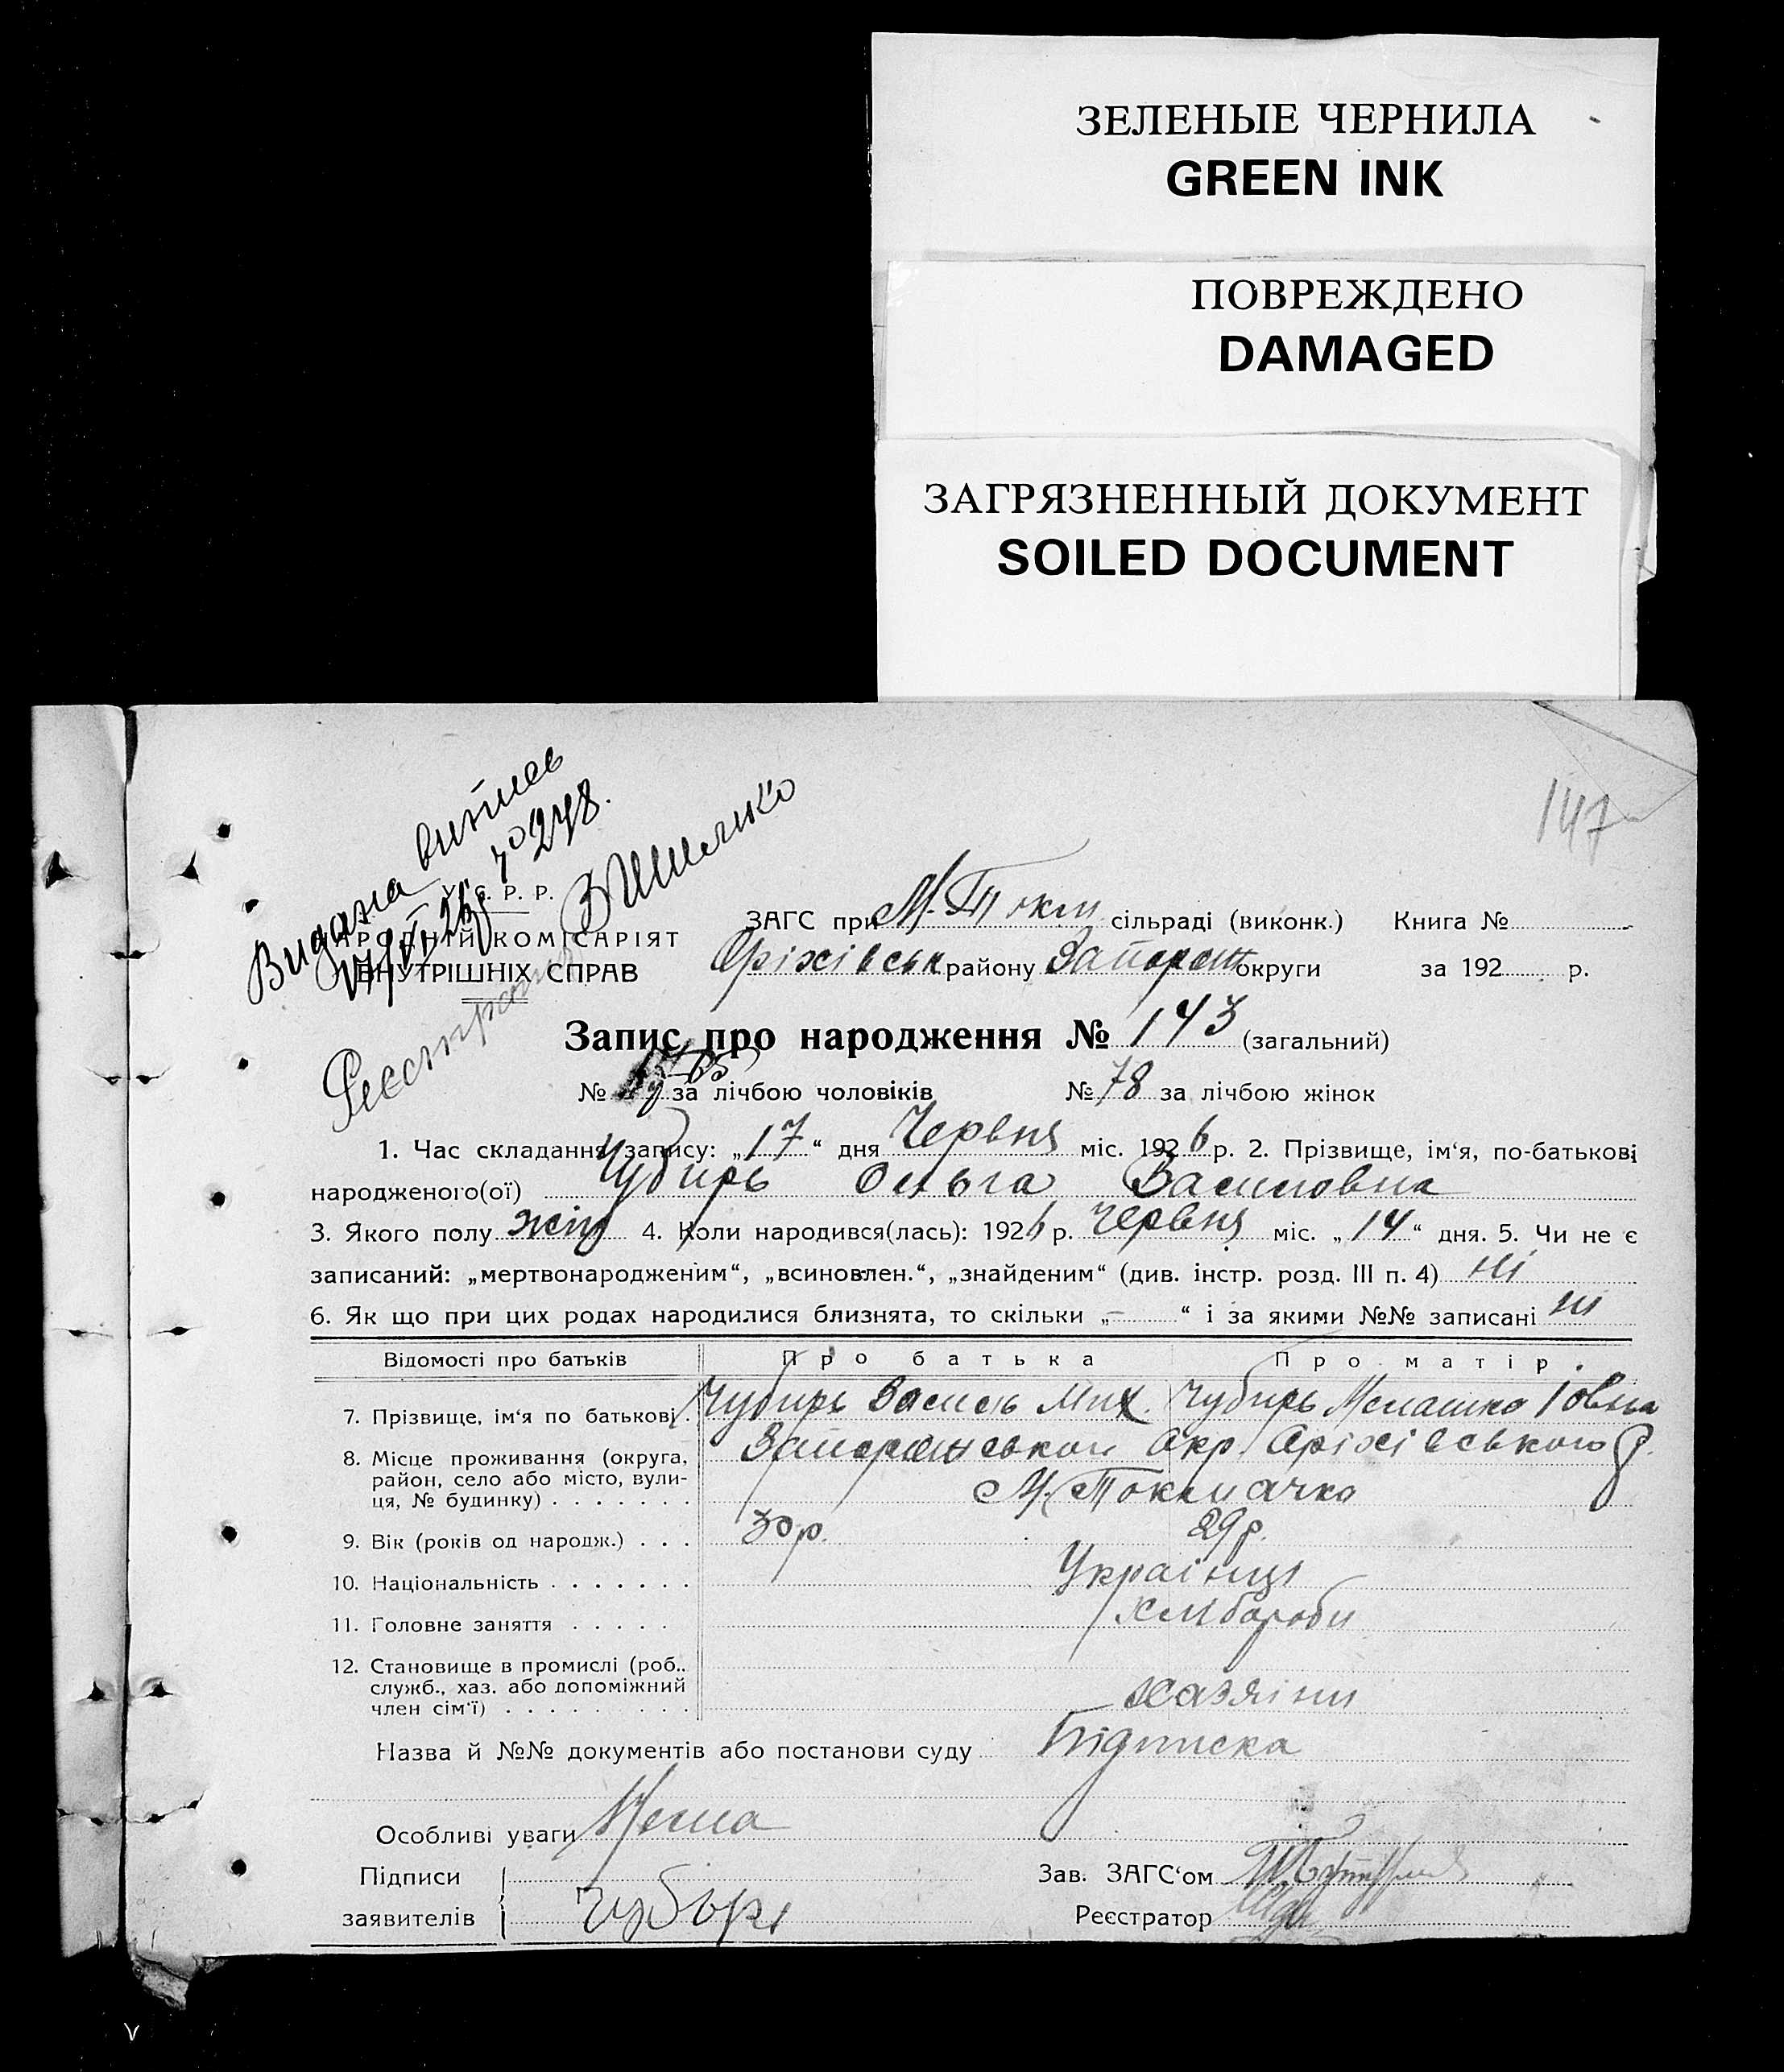 ЗЕЛЕНЫЕ ЧЕРНИЛА
GREEN INK
ПОВРЕЖДЕНО
DAMAGED
ЗАГРЯЗНЕННЫЙ ДОКУМЕНТ
SOILED DOCUMENT
147
Видана витяс
№ 248.
У. С. Р. Р.
НАРОДНІЙ КОМІСАРІЯТ
ВНУТРІШНІХ СПРАВ
ЗАГС при М. Токм сільраді (виконк.) Книга №
Оріхівськ району Запорож округи за 192 р.
Запис про народження № 143 (загальний)
№ 65 за лічбою чоловіків № 78 за лічбою жінок
1. Час складання запису: „17“ дня Червня міс. 1926 р. 2. Прізвище, ім‘я, по-батькові
народженого(ої) Чубирь Ольга Василовна
3. Якого полу жін 4. Коли народився(лась): 1926 р. Червня міс. „14“ дня. 5. Чи не є
записаний: „мертвонародженим“, „всиновлен.“, „знайденим“ (див. інстр. розд. III п. 4) ні
6. Як що при цих родах народилися близнята, то скільки „–“ і за якими №№ записані ні
Відомості про батьків Про батька Про матір
7. Прізвище, ім‘я по батькові Чубирь Василь Мих. Чубирь Мелашка Іовна
8. Місце проживання (округа, Запорожської Окр. Оріхівського Р.
район, село або місто, вули-
ця, № будинку) М. Токмачка
9. Вік (років од народж.) 30 р. 29 р.
10. Національність Українці
11. Головне заняття хліборобы
12. Становище в промислі (роб..
служб., хаз. або допоміжний
член сім‘ї) хазяіни
Назва й №№ документів або постанови суду Підписка
Особливі уваги Нема
Підписи Зав. ЗАГС‘ом
заявителів Чубырь Реєстратор